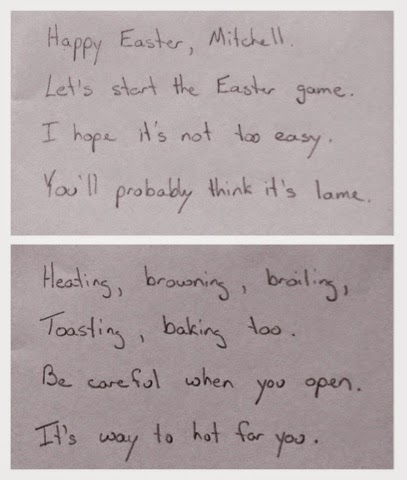 Happy Easter, Mitchell.
Let's start the Easter game.
I hope it's not too easy.
You'll probably think it's lame.
Heating, browning, broiling,
Toasting, baking too.
Be careful when you open.
It's way to hot for you.